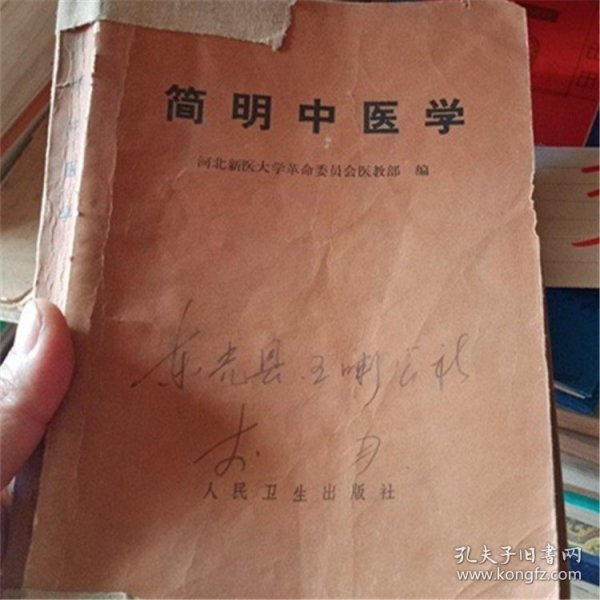 简明中医学
河北新医大学革命委员会医教部 编
东光县王
公社
人民卫生出版社
孔夫子旧书网
www.kongfz.com